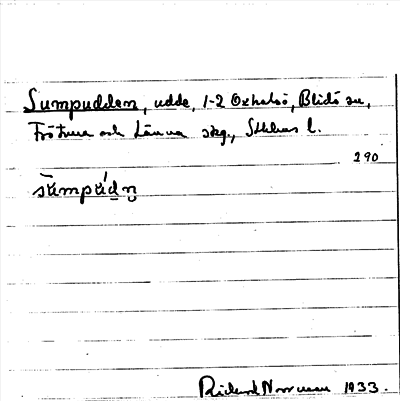 Sumpudden, udde, 1-2 Oxhalsö, Blidö sn,
Frötuna och Länna skg., Sthlms l.
290
sùmpúdn̥
Rickard Norrman 1933.